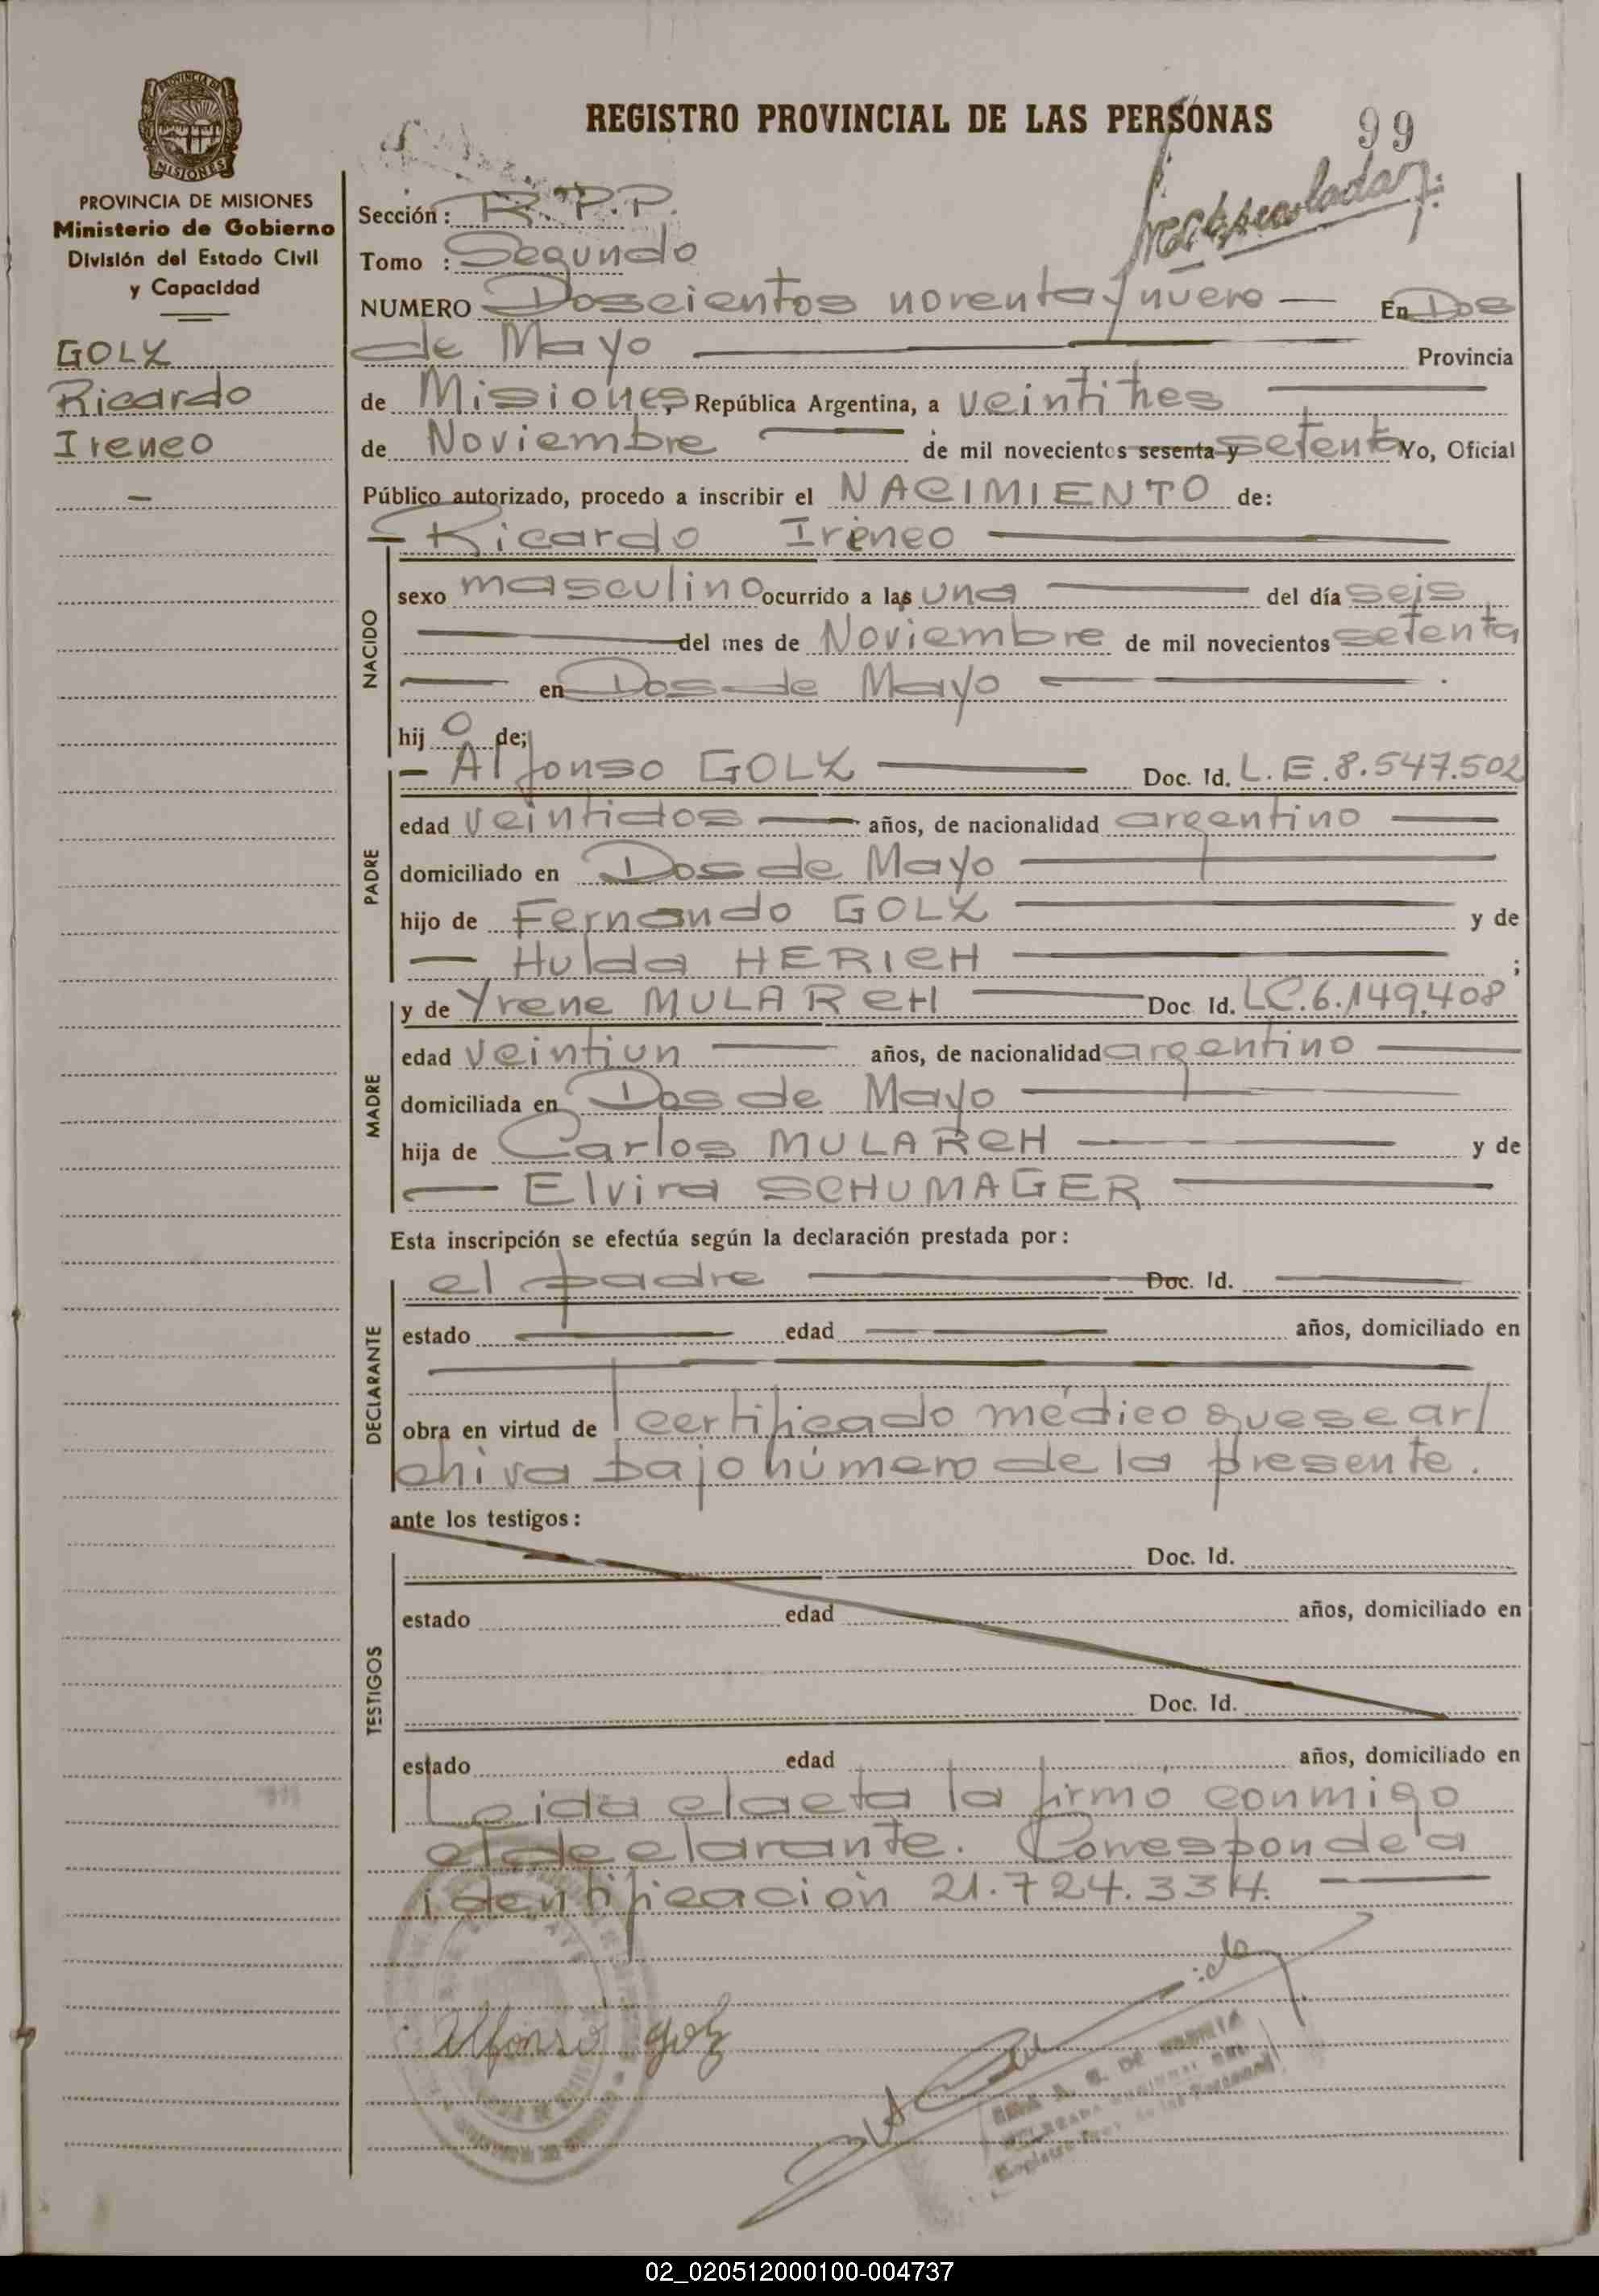 REGISTRO PROVINCIAL DE LAS PERSONAS
99
MISIONES
PROVINCIA DE MISIONES
Ministerio de Gobierno
División del Estado Civil
y Capacidad
GOLZ
Ricardo
Ireneo
Sección: R.P.P.
Tomo : Segundo
NUMERO Doscientos noventa y nueve — En Dos
de Mayo — Provincia
de Misiones, República Argentina, a veintitres
de Noviembre — de mil novecientos sesenta y setenta Yo, Oficial
Público autorizado, procedo a inscribir el NACIMIENTO de:
— Ricardo Ireneo —
NACIDO
sexo masculino ocurrido a las una — del día seis
— del mes de Noviembre de mil novecientos setenta
— en Dos de Mayo —
hij o de;
PADRE
— Alfonso GOLZ — Doc. Id. L.E.8.547.502
edad veintidos — años, de nacionalidad argentino —
domiciliado en Dos de Mayo —
hijo de Fernando GOLZ — y de
— Hulda HERICH — ;
MADRE
y de Yrene MULARCH — Doc. Id. LC.6.149.408
edad veintiun — años, de nacionalidad argentino —
domiciliada en Dos de Mayo —
hija de Carlos MULARCH — y de
— Elvira SCHUMAGER —
Esta inscripción se efectúa según la declaración prestada por:
DECLARANTE
el padre — Doc. Id. —
estado — edad — años, domiciliado en
obra en virtud de certificado médico que se ar/
chiva bajo número de la presente.
ante los testigos:
TESTIGOS
Doc. Id.
estado edad años, domiciliado en
Doc. Id.
estado edad años, domiciliado en
Leida el acta la firmó conmigo
el declarante. Corresponde a
identificación 21.724.334. —
Alfonso Golz
02_020512000100-004737